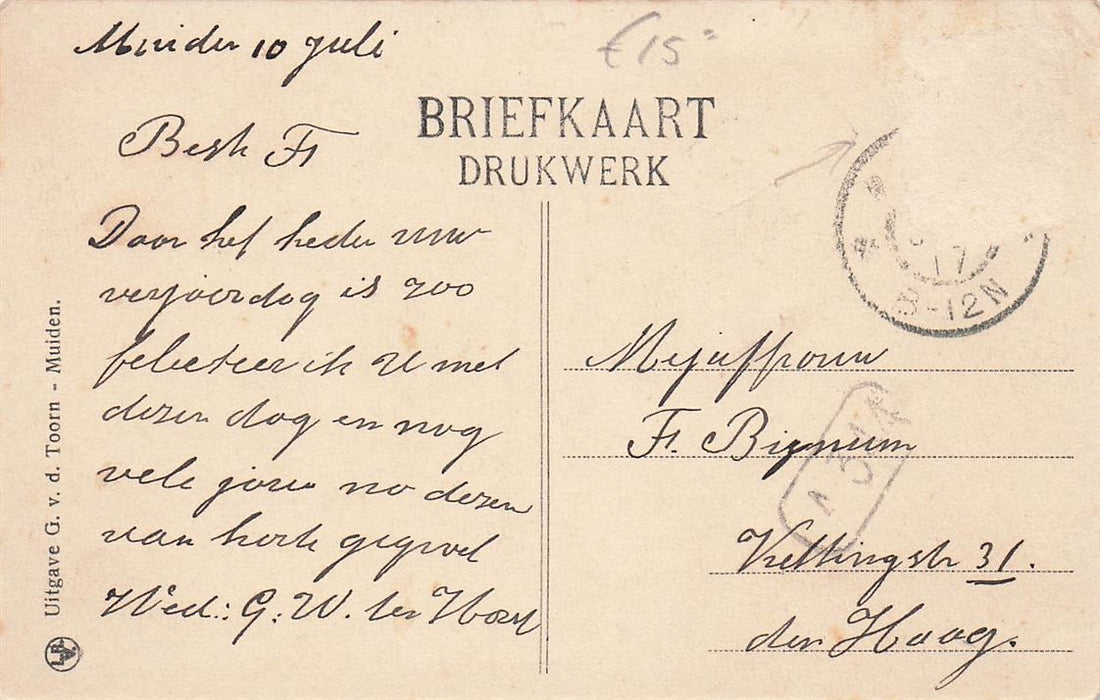 Muiden 10 Juli
€ 15=
BRIEFKAART
DRUKWERK
Beste Fr
Daar het heden uw
verjaardag is zoo
feliciteer ik U met
dezen dag en nog
vele jaren na dezen
van harte gegroet
Wed: G. W. ter Horst
17
8-12N
Mejuffrouw
Fr. Bigneum
N 314
Kettingstr 31.
den Haag.
Uitgave G. v. d. Toorn - Muiden.